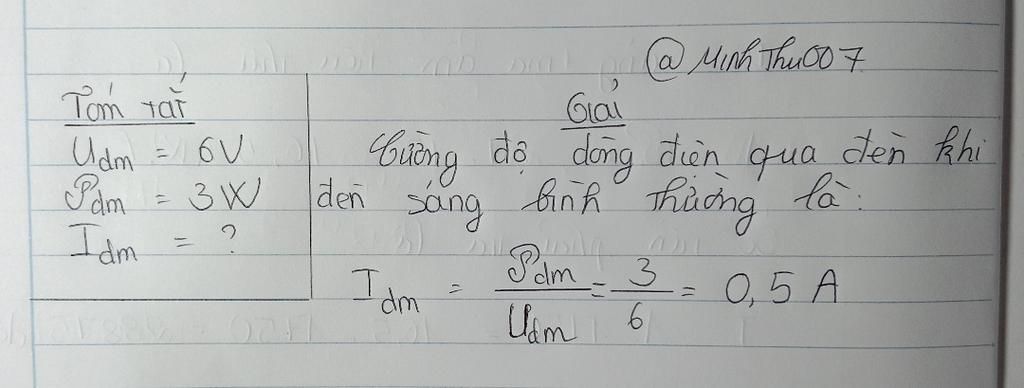 @MinhThu007
Tóm tắt
Uđm = 6V
Pđm = 3W
Iđm = ?
Giải
Cường độ dòng điện qua đèn khi
đèn sáng bình thường là:
Iđm = Pđm/Uđm = 3/6 = 0,5 A